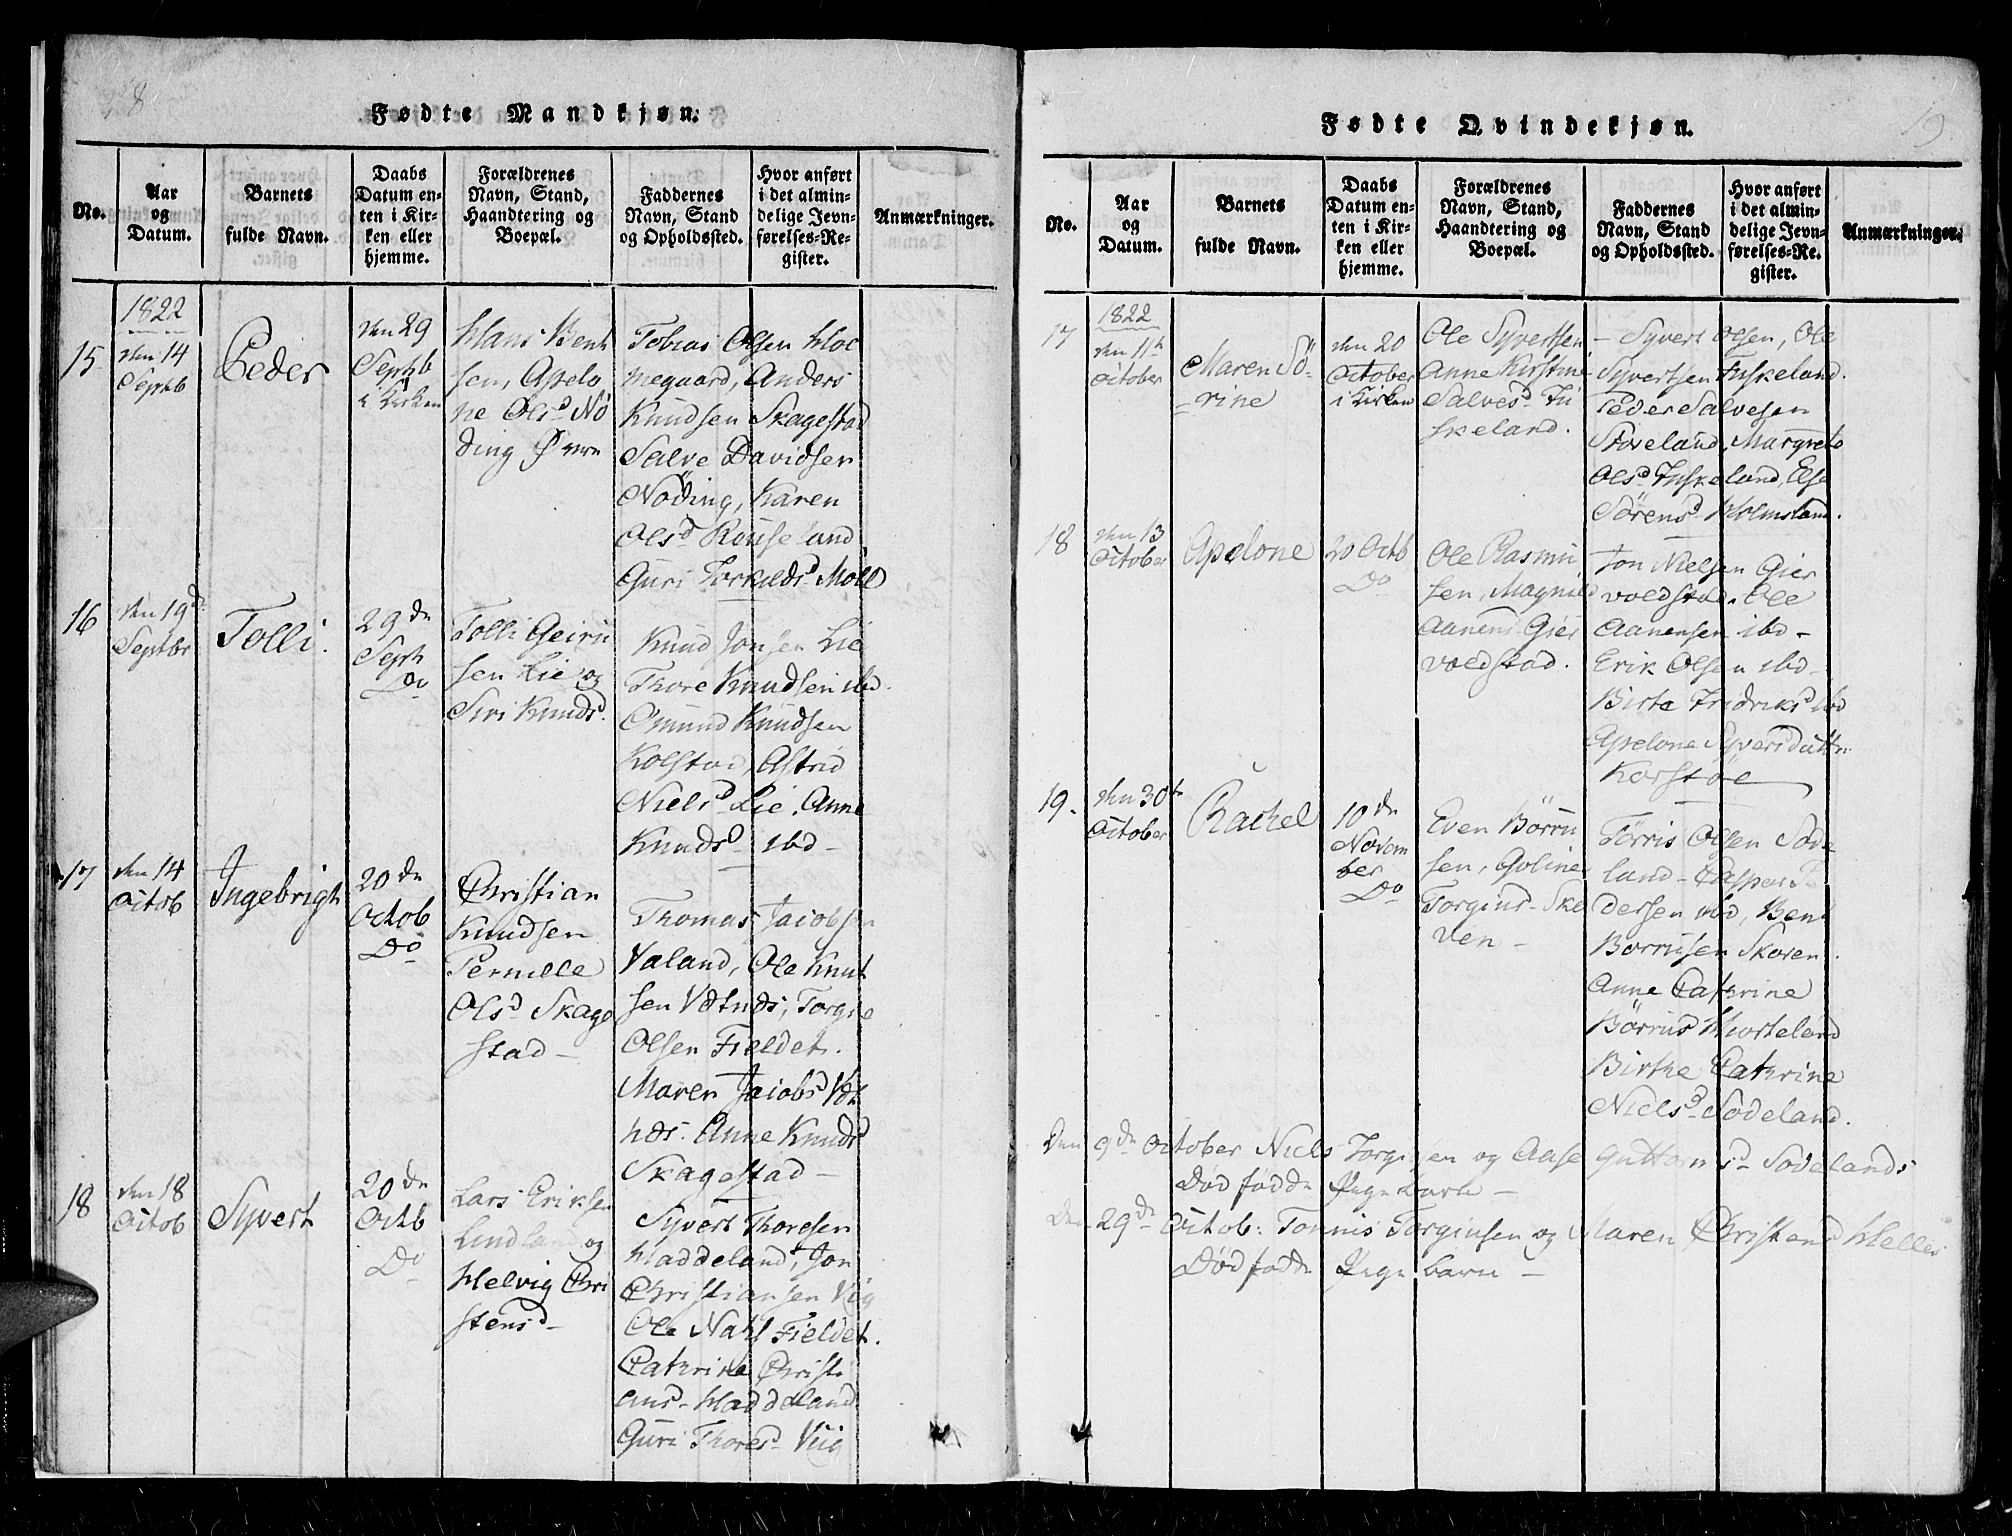 18
Fødte Mandkjøn.
No.
Aar
og
Datum.
Barnets
fulde Navn.
Daabs
Datum en-
ten i Kir-
ken eller
hjemme.
Forældrenes
Navn, Stand,
Haandtering og
Boepæl.
Faddernes
Navn, Stand
og Opholdssted.
Hvor anført
i det almin-
delige Jevn-
førelses-Re-
gister.
Anmærkninger.
1822
15
den 14
Septb
Peder
den 29
Septb
i Kirken
Hans Bent
sen, Apelo
ne Olsd Nö
ding Øvre
Tobias Olsen Hol
megaard, Anders
Knudsen Skagestad
Salve Davidsen
Nöding, Karen
Olsd Rouseland
Guri Torkelds Möll
16
den 19d
Septbr
Tolli.
29de
Septb
Do
Tolli Geiru
sen Lie og
Siri Knuds.
Knud Jonsen Lie
Thore Knudsen ibd.
Omund Knudsen
Kolstad, Astrid
Nielsd Lie. Anne
Knudsd ibd -
17
den 14
Octob
Ingebrigt
20de
Octob
Do
Christian
Knudsen
Pernille
Olsd Skage
stad -
Thomas Jacobsen
Valand, Ole Knut
sen Vatnds, Torgie
Olsen Fieldet.
Maren Jacobsd Vat
nds. Anne Knudsd
Skagestad -
18
den 18
Octob
Syvert
20de
Octb
Do
Lars Eriksen
Lindland og
Helvig Chri
stensd -
Syvert Thoresen
Haddeland, Jon
Christiansen Viig
Ole Nahl Fieldet.
Catrine Christi
ansd Haddeland
Guri Thoresd Viig
19
Fødte Qvindekjøn.
No.
Aar
og
Datum.
Barnets
fulde Navn.
Daabs
Datum en-
ten i Kir-
ken eller
hjemme.
Forældrenes
Navn, Stand,
Haandtering og
Boepæl.
Faddernes
Navn, Stand
og Opholdssted.
Hvor anført
i det almin-
delige Jevn-
førelses-Re-
gister.
Anmærkninger.
1822
17
den 11te
October
Maren Sö-
rine
den 20
October
i Kirken
Ole Syvertsen
Anne Kirstine
Salvesd Fu
skeland.
- Syvert Olsen, Ole
Syvertsen Fuskeland.
Peder Salvesen
Stoveland, Margrete
Olsd Fuskeland, Else
Sörensd Holmsland.
18
den 13
October
Apelone
20 Octb
Do
Ole Rasmu
sen, Magnild
Aanensd Gier
voldstad.
Jon Nielsen Gier
voldstad. Ole
Aanensen ibd -
Erik Olsen ibd -
Birte Fredriksd ibd
Apelone Syversdatter
Korstöe
19.
den 30te
October
Rachel
10de
Novem
ber
Do
Even Börru
sen, Goline
Torgiusd Ske
ven -
Törris Olsen Söde
land - Casper Pe
dersen ibd, Bent
Borrusen Skoren.
Anne Catrine
Börrusd Hiorteland
Birthe Catrine
Nielsd Södeland.
Den 9de October Niels Torgisen og Aase Guttorms- Sodelands
Död födde Pige barn -
Den 29de Octob: Tönnis Torgiusen og Maren Christensd Helles
Död födde Pige barn -